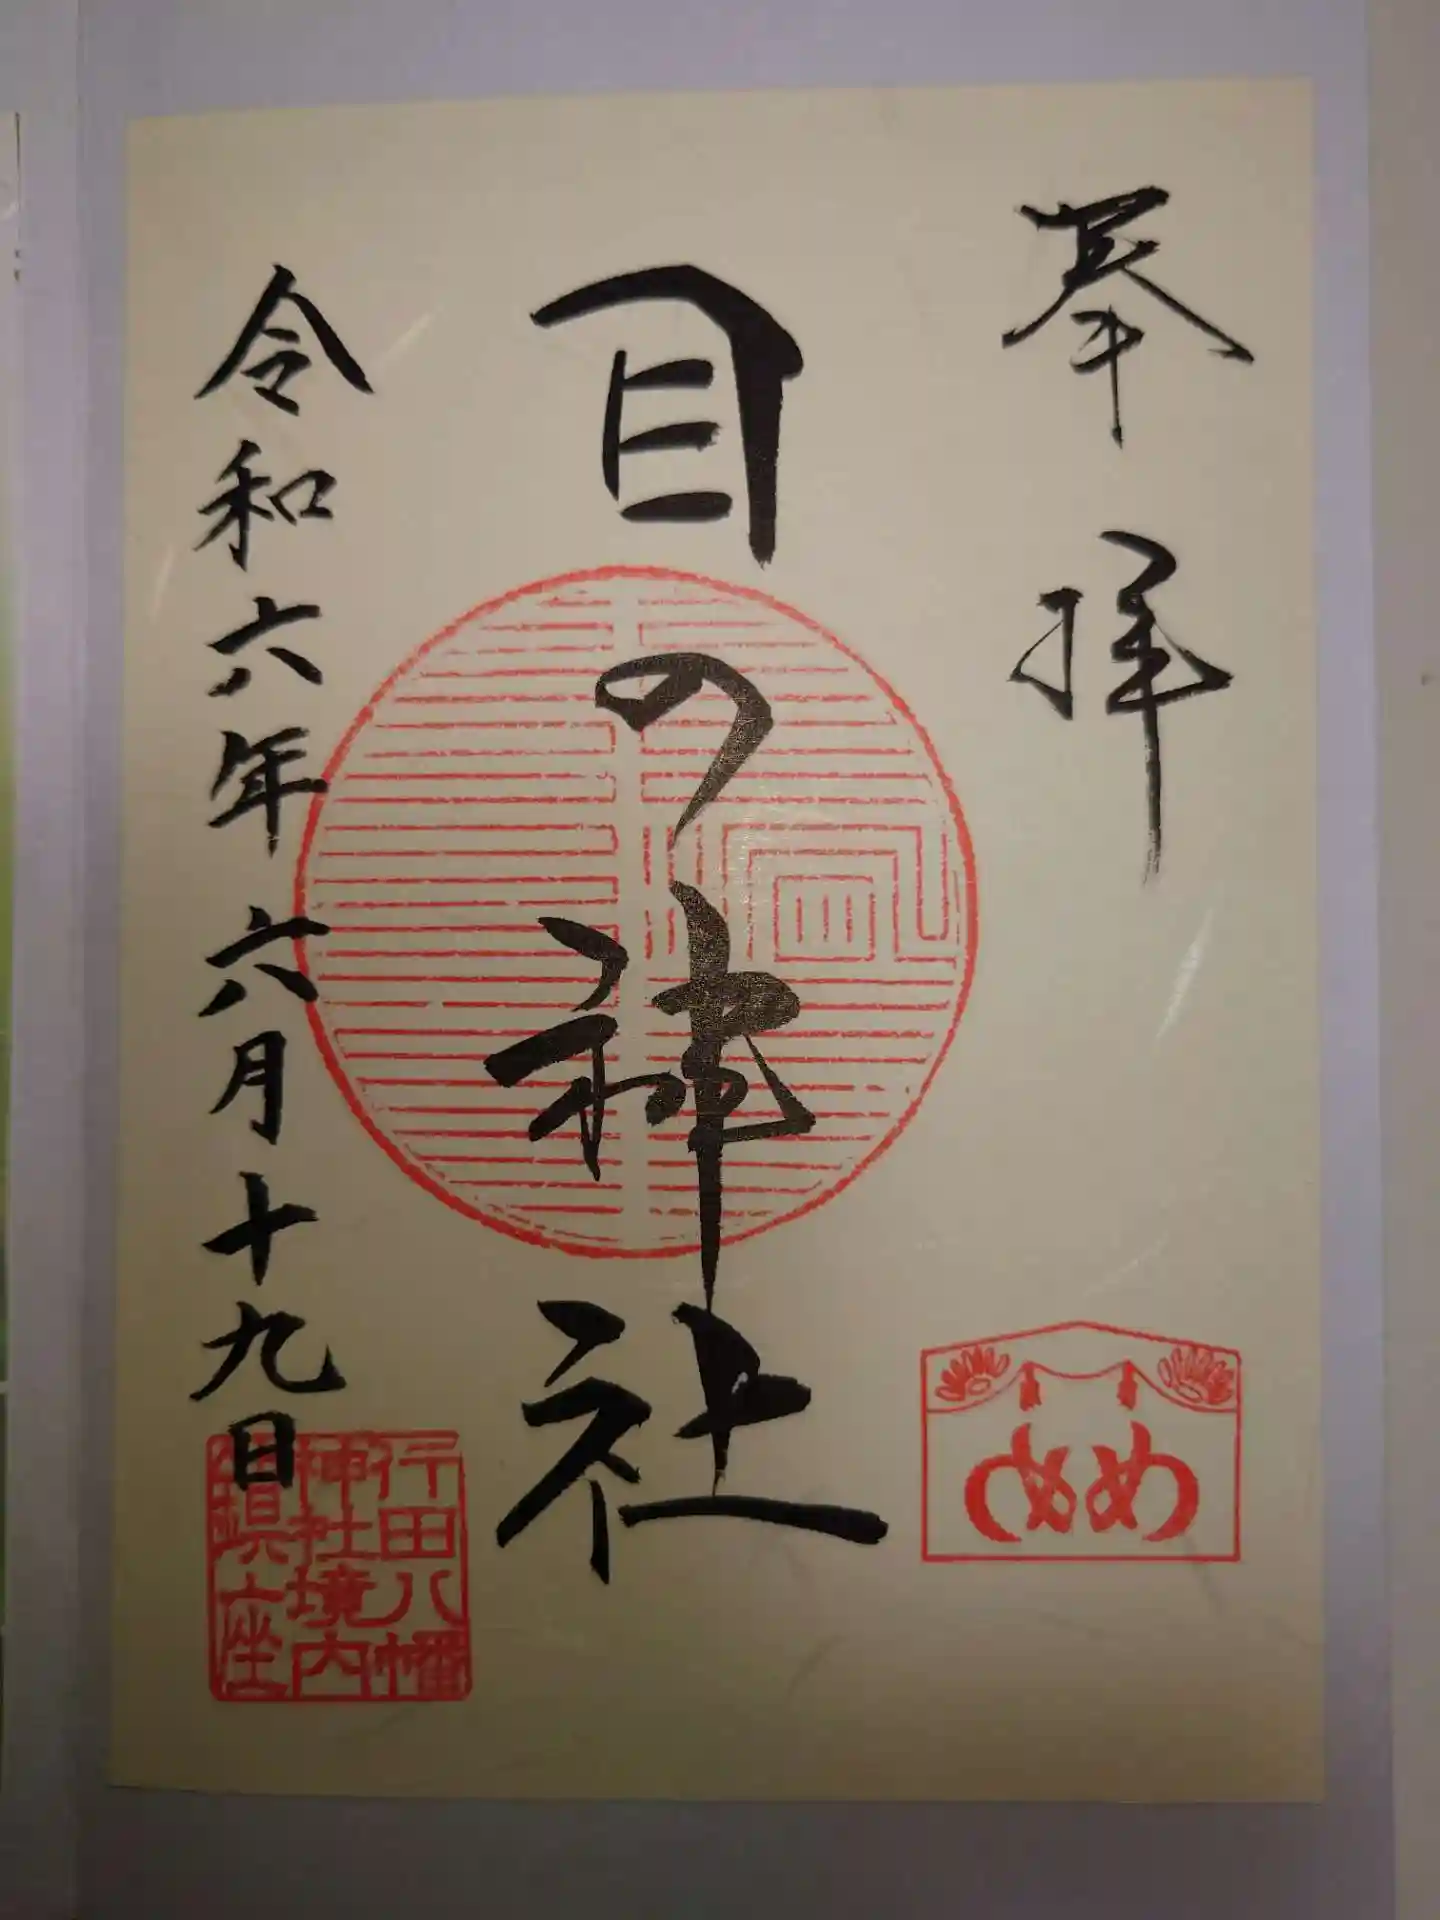 奉拝
目の神社
令和六年六月十九日
めめ
行田八幡
神社境内
鎮座